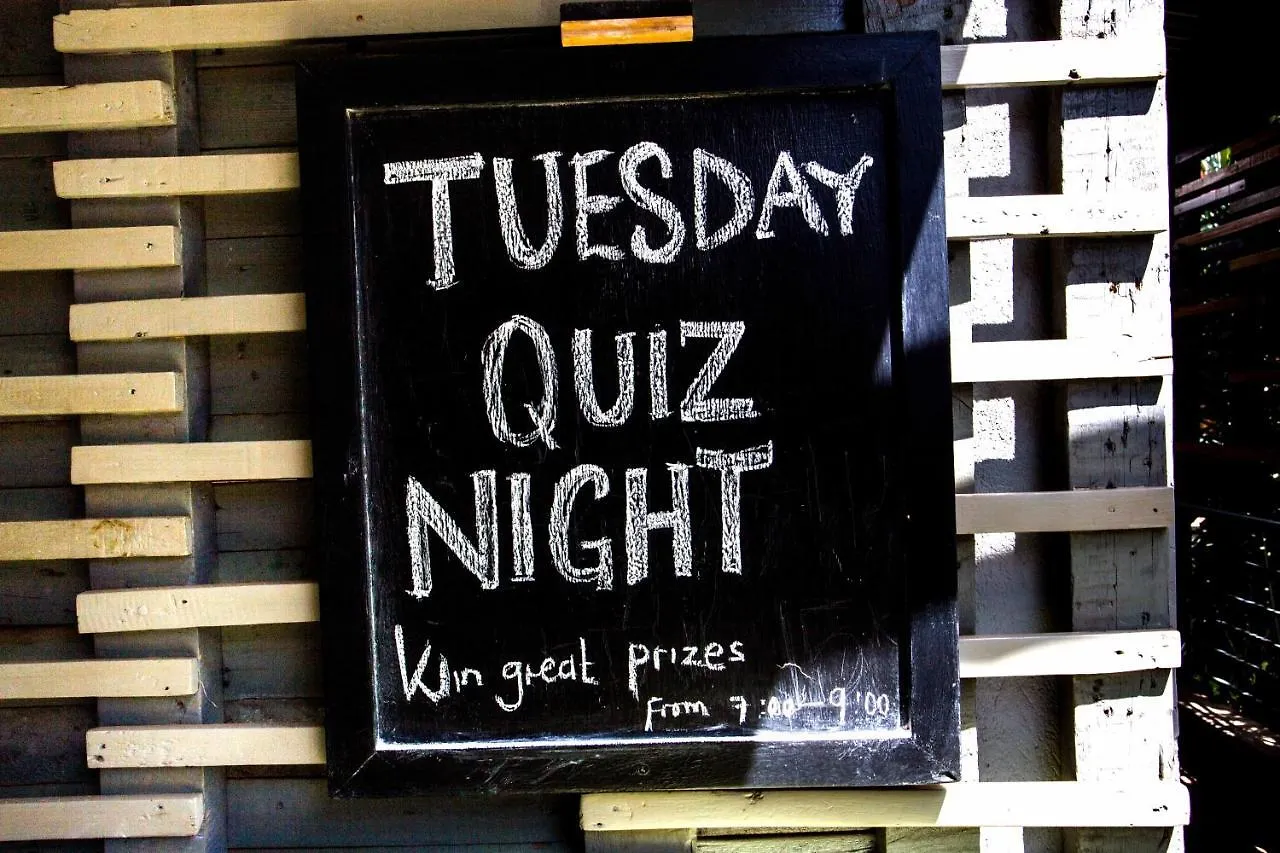 TUESDAY
QUIZ
NIGHT
Win great prizes
From 7:00 - 9:00